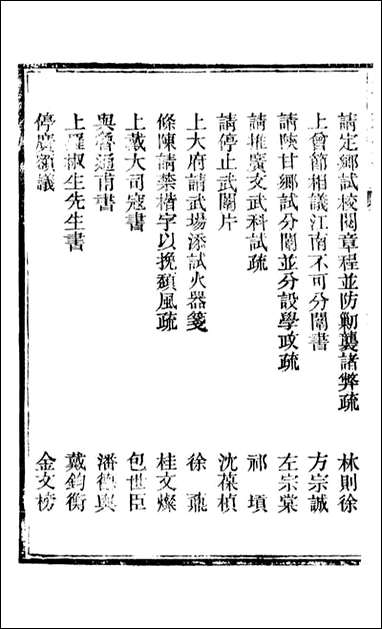 請定鄉試校閱章程並防勦襲諸弊疏 林則徐
上曾節相議江南不可分闈書 方宗誠
請陝甘鄉試分闈並分設學政疏 左宗棠
請推廣文武科試疏 祁 𡎴
請停止武闈片 沈葆楨
上大府請武場添試火器箋 徐 鼒
條陳請禁楷字以挽頹風疏 桂文燦
上戴大司寇書 包世臣
與魯通甫書 潘德輿
上羅椒生先生書 戴鈞衡
停廣額議 金文榜